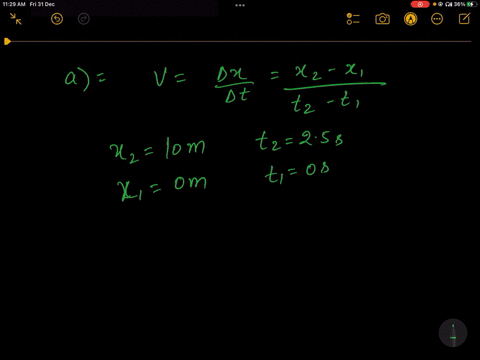 11:29 AM Fri 31 Dec
36%
a) = V = Δx/Δt = x₂ - x₁/t₂ - t₁
x₂ = 10m t₂ = 2.5s
x₁ = 0m t₁ = 0s